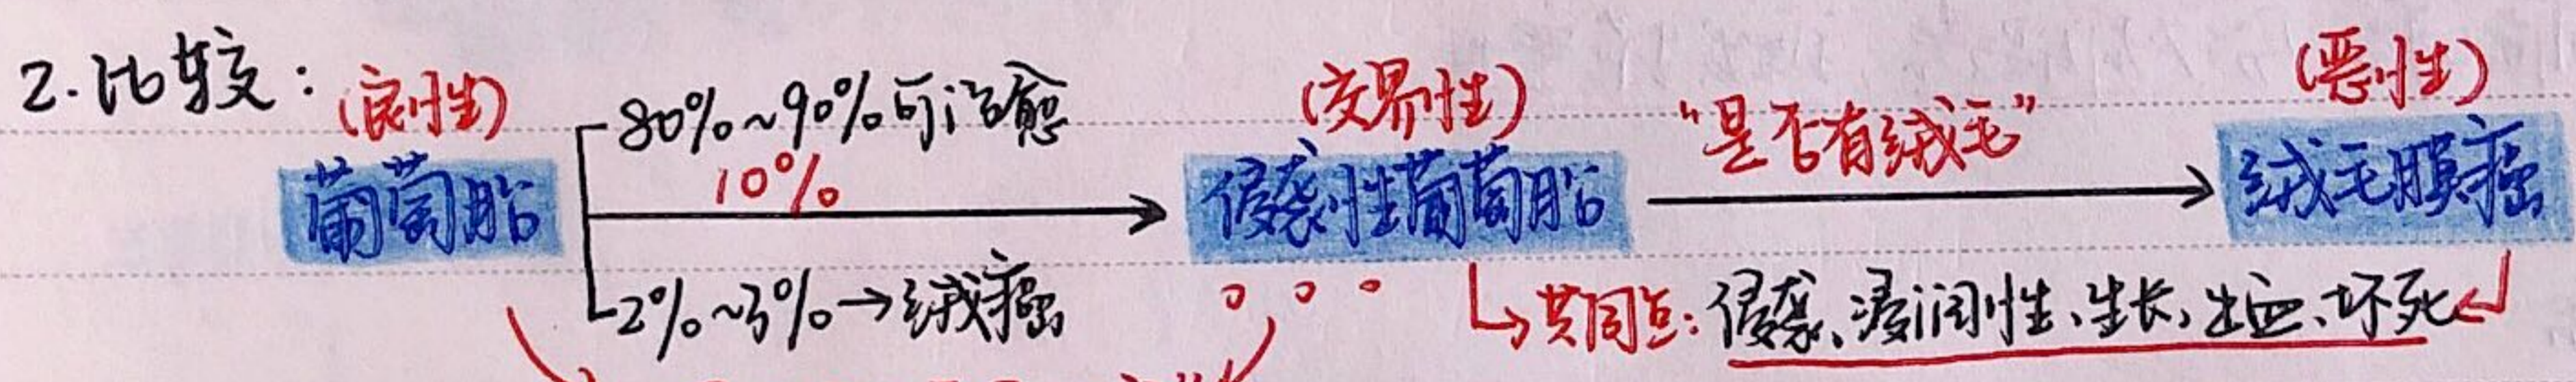 2.比较:
(良性) 葡萄胎
80%~90%可治愈
10%
2%~3%→绒癌
(交界性) 侵袭性葡萄胎
"是否有绒毛"
(恶性) 绒毛膜癌
共同点:侵袭、浸润性、生长、出血、坏死